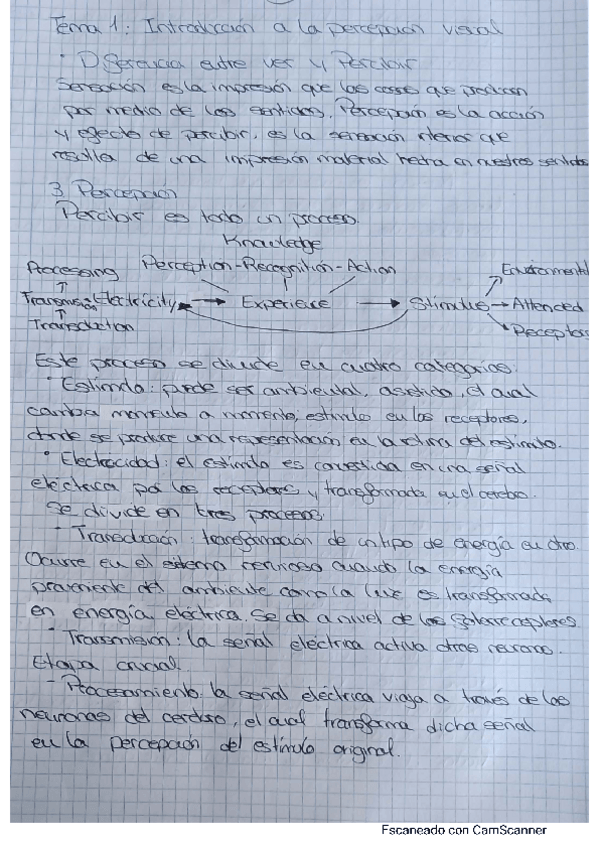 Tema 1: Introducción a la percepción visual
· Diferencia entre ver y Percibir
Sensación es la impresión que las cosas que producen
por medio de los sentidos. Percepción es la acción
y efecto de percibir, es la sensación interior que
resulta de una impresión material hecha en nuestros sentidos
3 Percepción
Percibir es todo un proceso.
Knowledge
Processing Perception-Recognition-Action Environmental
Transmission Electricity Experience Stimulus Attended
Transduction Receptors
Este proceso se divide en cuatro categorías:
· Estímulo: puede ser ambiental, asistido, el cual
cambia momento a momento, estímulo en los receptores,
donde se produce una representación en la retina del estímulo.
· Electrocidad: el estímulo es convertida en una señal
eléctrica por los receptores y transformada en el cerebro.
Se divide en tres procesos:
- Transducción: transformación de un tipo de energía en otro.
Ocurre en el sistema nervioso cuando la energía
proveniente del ambiente como la luz es transformada
en energía eléctrica. Se da a nivel de los fotorreceptores
- Transmisión: la señal eléctrica activa otras neuronas.
Etapa crucial.
- Procesamiento: la señal eléctrica viaja a través de las
neuronas del cerebro, el cual transforma dicha señal
en la percepción del estímulo original.
Escaneado con CamScanner